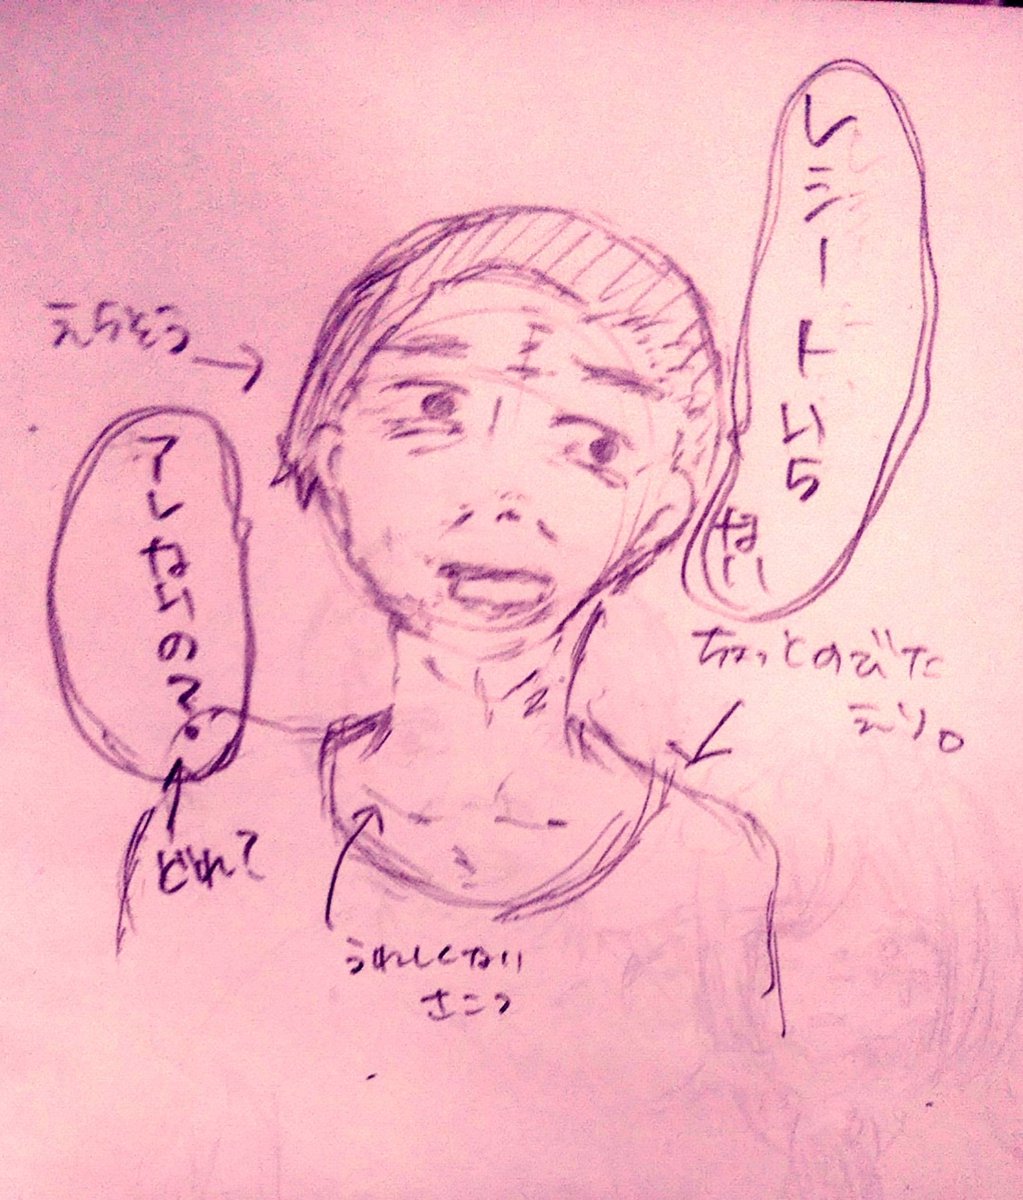 レシートいら
ない
えらそう
アレないの?
ちょっとのびた
えり。
どれ?
うれしくない
さこつ